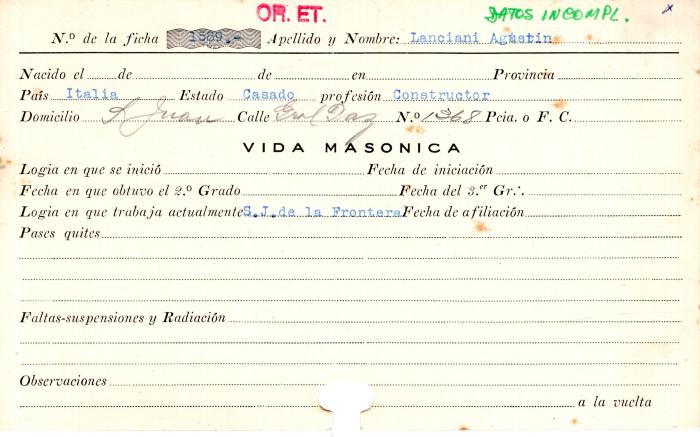 OR. ET. DATOS INCOMPL. x
N.º de la ficha 1539.- Apellido y Nombre: Lanciani Agustin
Nacido el de de en Provincia
País Italia Estado Casado profesión Constructor
Domicilio S Juan Calle Gral Paz N.º 1368 Pcia. o F. C.
VIDA MASONICA
Logia en que se inició Fecha de iniciación
Fecha en que obtuvo el 2.º Grado Fecha del 3.er Gr∴
Logia en que trabaja actualmente S.J.de la Frontera Fecha de afiliación
Pases quites
Faltas-suspensiones y Radiación
Observaciones
a la vuelta